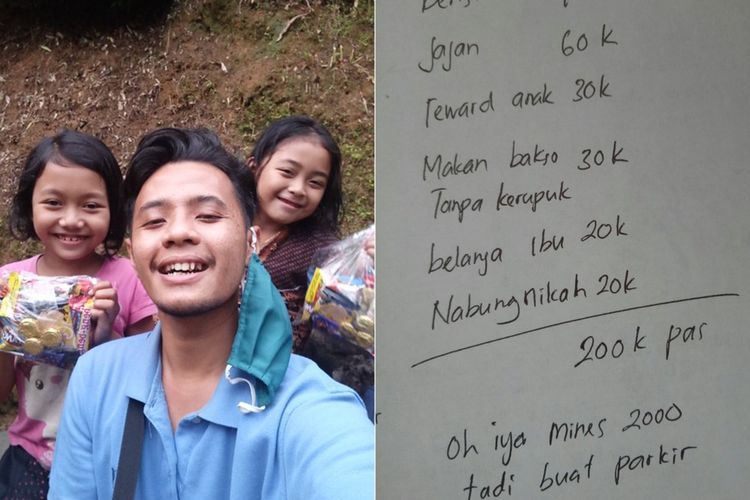 Jajan 60k
reward anak 30k
Makan bakso 30k
Tanpa kerupuk
belanja Ibu 20k
Nabung nikah 20k
200k pas
Oh iya mines 2000
tadi buat parkir